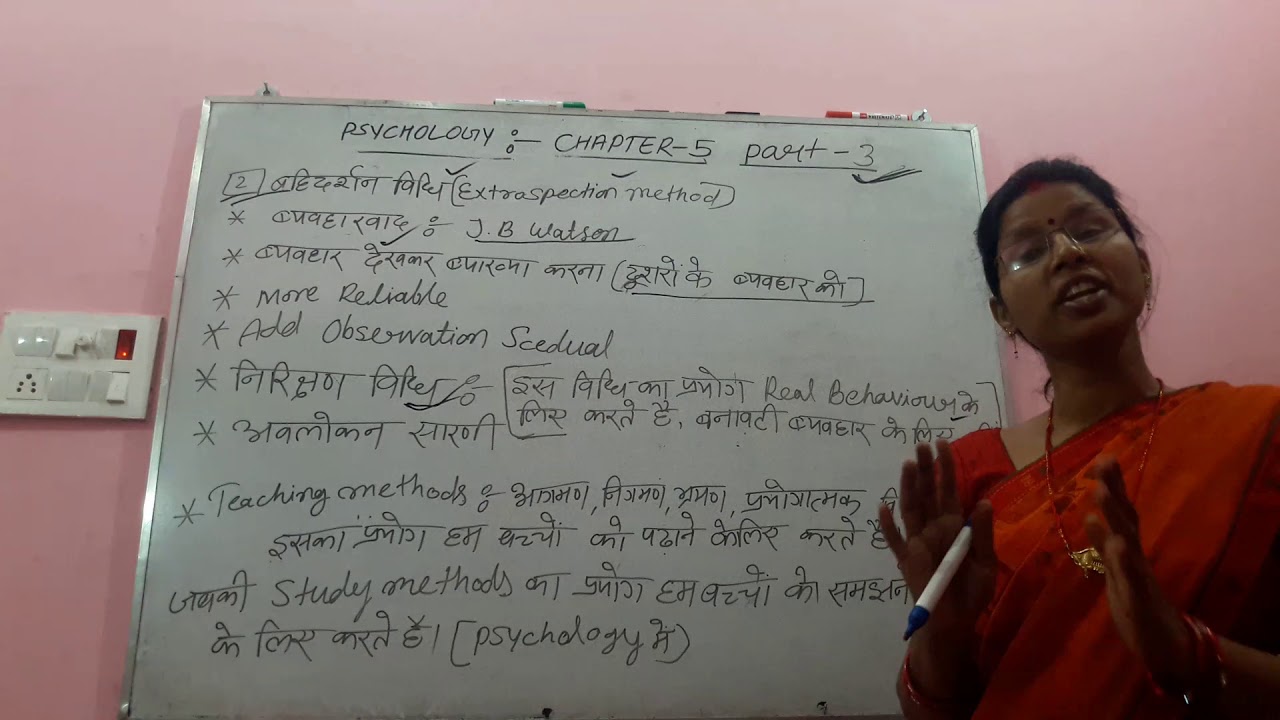 PSYCHOLOGY :- CHAPTER-5 Part-3
[2] बहिदर्शन विधि (Extraspection method)
* व्यवहारवाद :- J.B Watson
* व्यवहार देखकर व्याख्या करना (दूशरों के व्यवहार को)
* More Reliable
* Add Observation Scedual
* निरिक्षण विधि :- [इस विधि का प्रयोग Real Behaviour के
लिए करते है, बनावटी व्यवहार के लिए
* अवलोकन सारणी
* Teaching methods :- आगमण, निगमण, भ्रमण, प्रयोगात्मक वि
इसका प्रयोग हम बच्चों को पढ़ाने के लिए करते है
जबकी Study methods का प्रयोग हम बच्चों को समझन
के लिए करते है। [Psychology में)